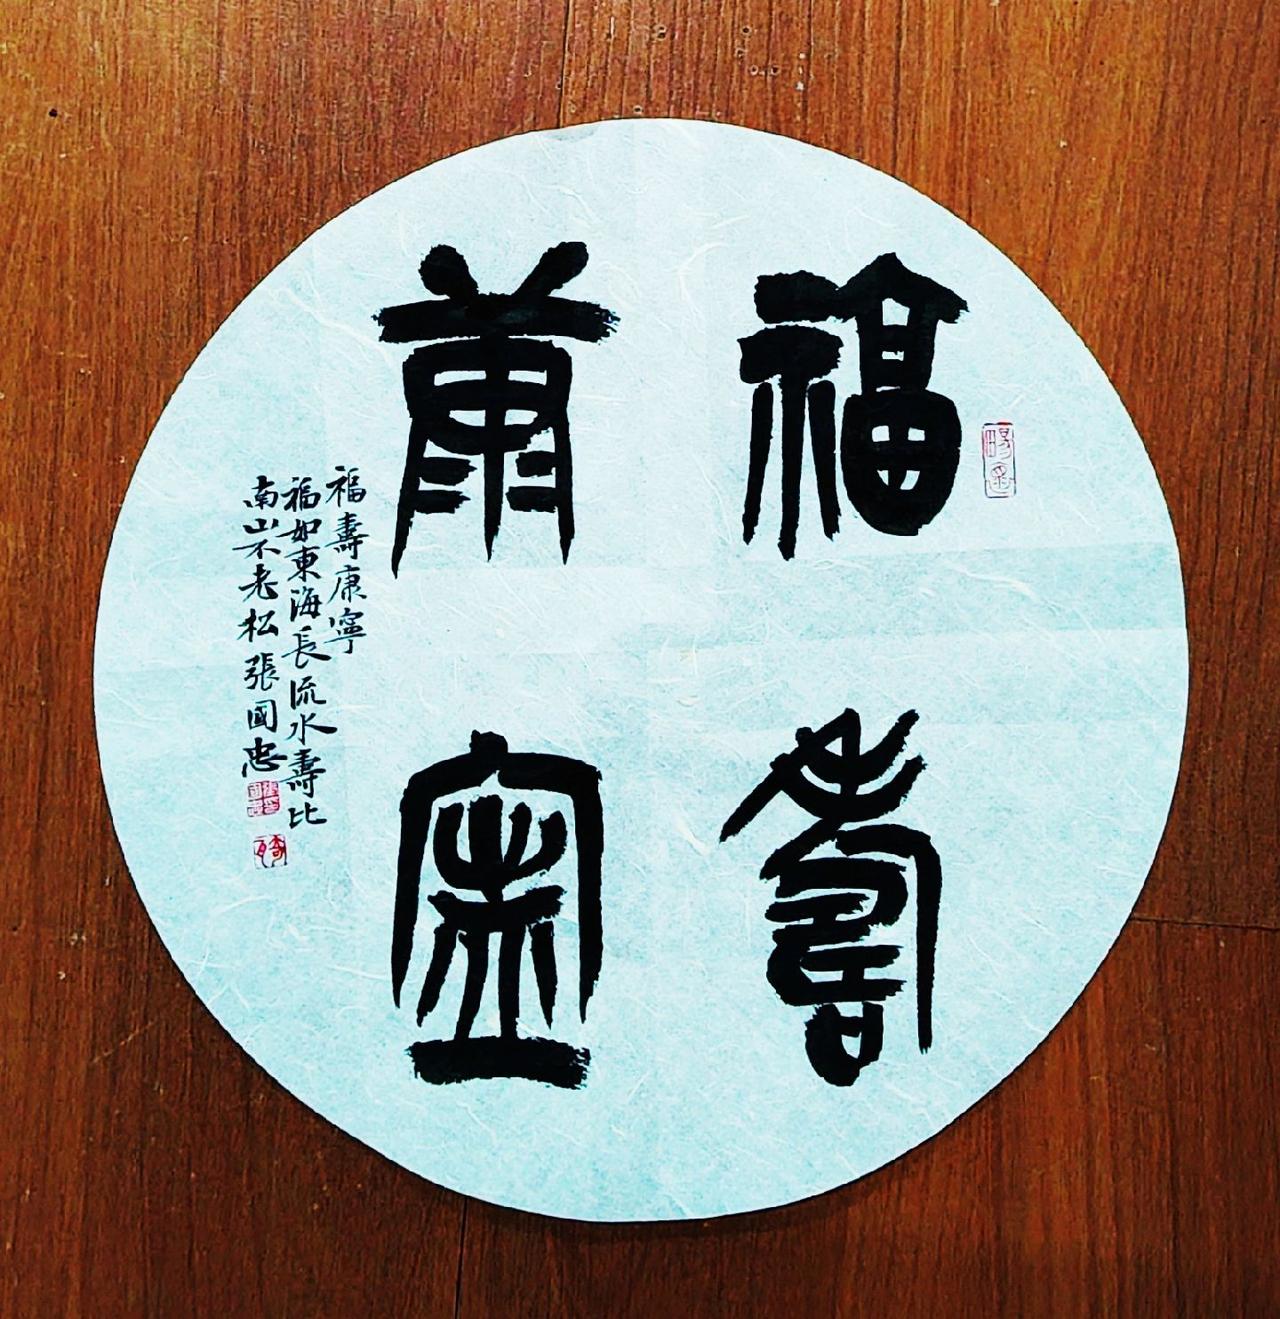 福壽
康寧
福壽康寧
福如東海長流水壽比
南山不老松張國忠